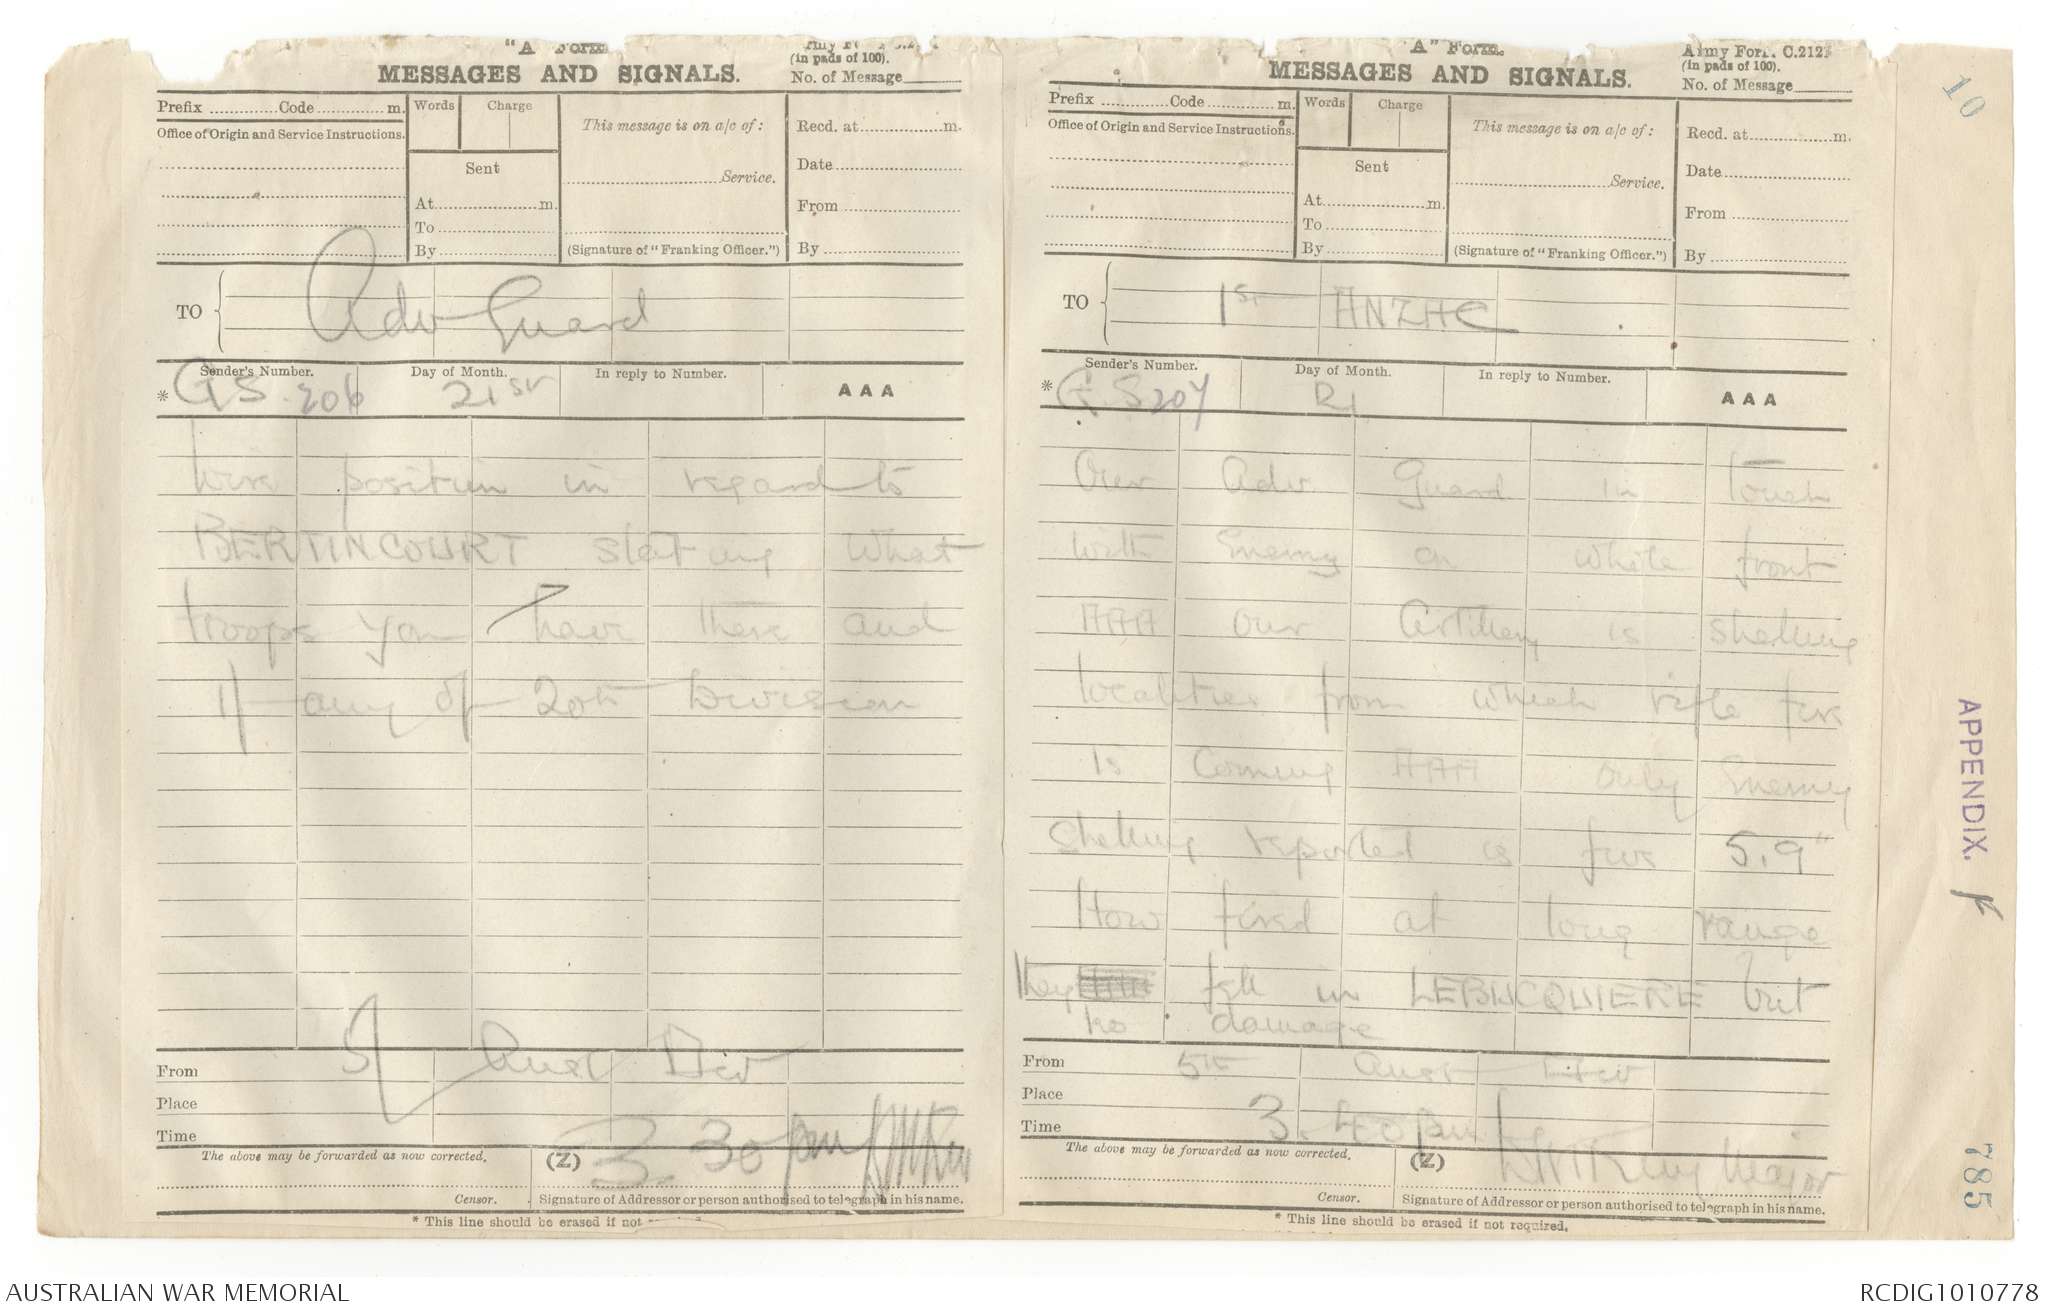 "A" Form.
MESSAGES AND SIGNALS.
(in pads of 100).
No. of Message
Prefix Code m.
Words Charge
This message is on a/c of:
Recd. at m.
Office of Origin and Service Instructions.
Sent
Date
Service.
At m.
From
To
By
(Signature of "Franking Officer.")
By
TO
Adv Guard
Sender's Number.
Day of Month.
In reply to Number.
AAA
* GS 206
21st
Wire position in regard to
BERTINCOURT stating what
troops you have there and
if any of 20th Division
From
5 Aust Div
Place
Time
3.30 pm
The above may be forwarded as now corrected.
(Z)
Censor.
Signature of Addressor or person authorised to telegraph in his name.
* This line should be erased if not
"A" Form.
Army Form C.2121
MESSAGES AND SIGNALS.
(in pads of 100).
No. of Message
Prefix Code m.
Words Charge
This message is on a/c of:
Recd. at m.
Office of Origin and Service Instructions.
Sent
Date
Service.
At m.
From
To
By
(Signature of "Franking Officer.")
By
TO
1st ANZAC
Sender's Number.
Day of Month.
In reply to Number.
AAA
* G.S 207
21
Our Adv Guard in touch
with Enemy on whole front
AAA our Artillery is shelling
localities from which rifle fire
is coming AAA only Enemy
shelling reported is five 5.9"
How fired at long range
they fell in LEBUCQUIERE but
no damage
From
5th Aust Div
Place
Time
3.40 pm
The above may be forwarded as now corrected.
(Z)
Major
Censor.
Signature of Addressor or person authorised to telegraph in his name.
* This line should be erased if not required.
10
APPENDIX.
785
AUSTRALIAN WAR MEMORIAL
RCDIG1010778